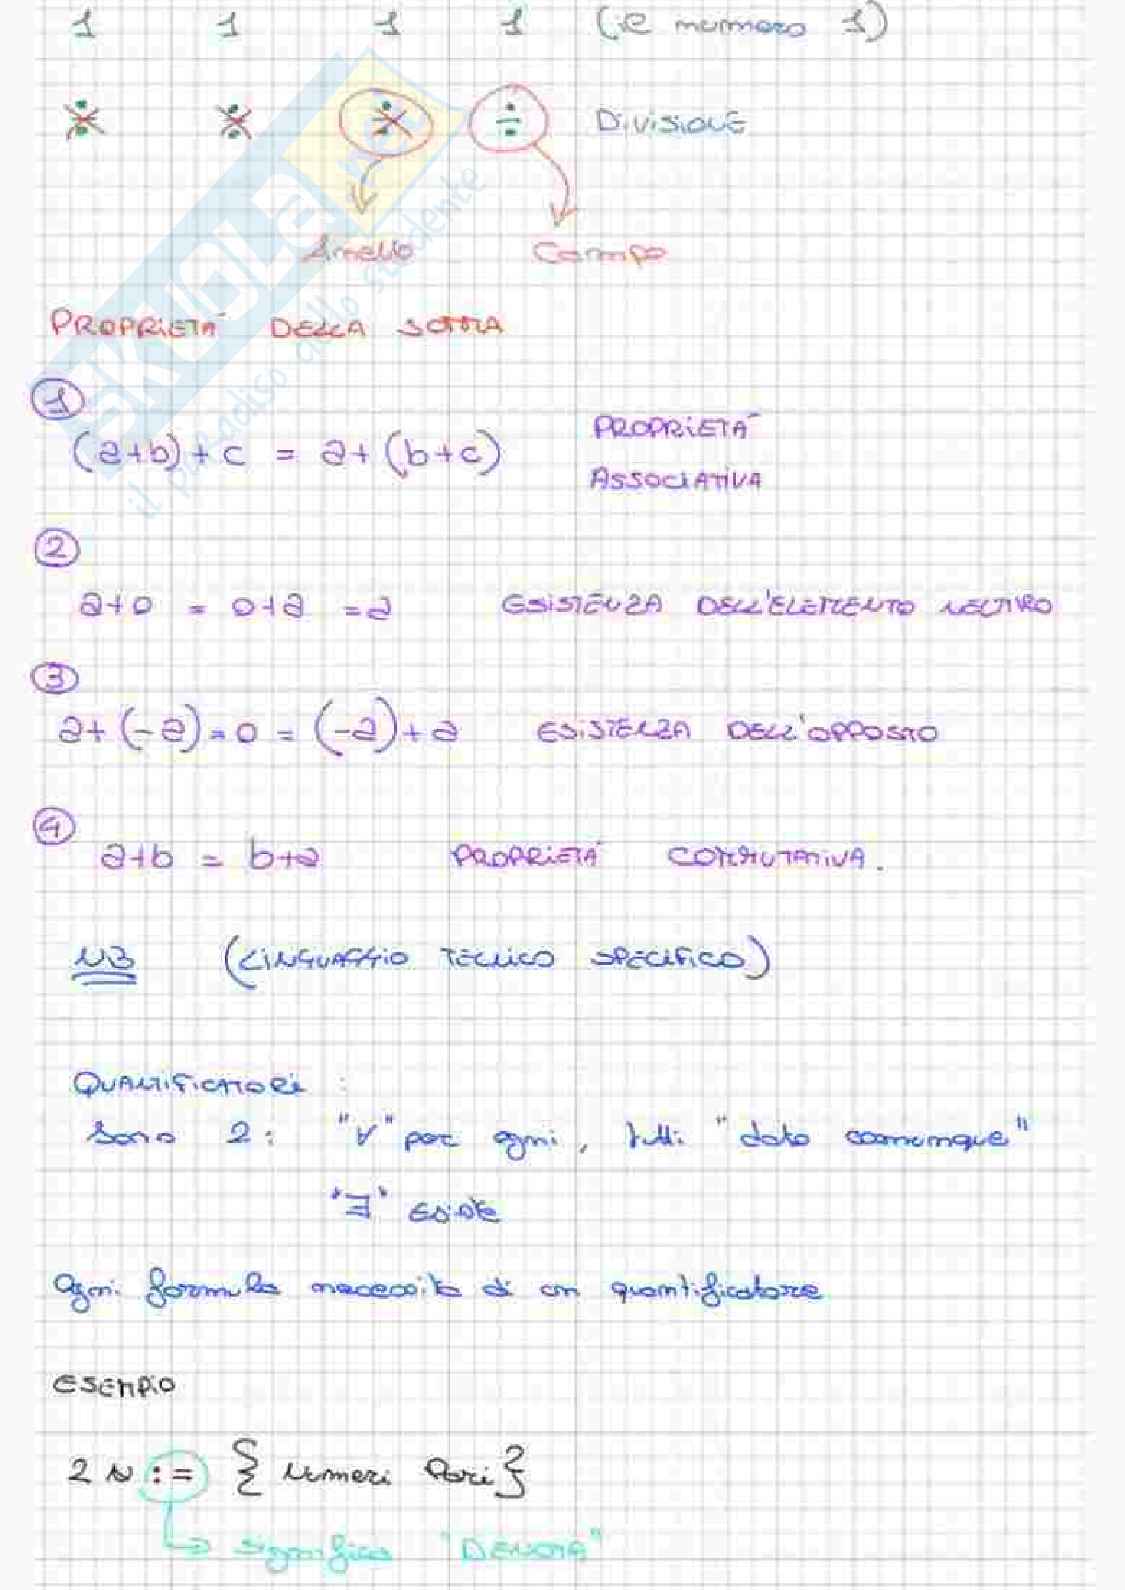 1 1 1 1 (il numero 1)
÷ ÷ ÷ ÷ DIVISIONE
Anello Campo
PROPRIETA' DELLA SOMMA
1
(a+b)+c = a+(b+c) PROPRIETA'
ASSOCIATIVA
2
a+0 = 0+a = a ESISTENZA DELL'ELEMENTO NEUTRO
3
a+(-a)=0=(-a)+a ESISTENZA DELL'OPPOSTO
4
a+b = b+a PROPRIETA' COMMUTATIVA.
NB (LINGUAGGIO TECNICO SPECIFICO)
QUANTIFICATORI :
Sono 2: "∀" per ogni, tutti "dato comunque"
"∃" esiste
Ogni formula necessita di un quantificatore
ESEMPIO
2N := {Numeri Pari}
significa "DENOTA"
SKUOLA.net
il paradiso dello studente